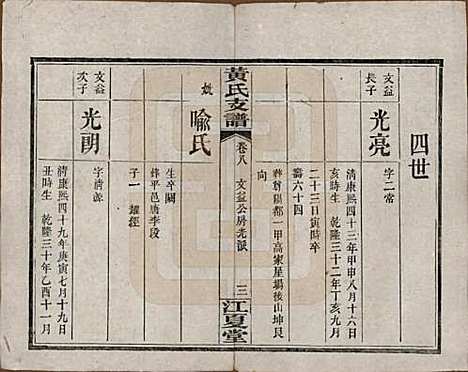 四世
文益長子
光亮
字二常
清康熙四十三年甲申八月十六日
亥時生 乾隆三十二年丁亥九月
二十三日寅時卒
壽六十四
葬首陽都一甲高家星塲後山坤艮
向
黃氏支譜
卷八
文益公房光派
三
江夏堂
喩氏
生卒闕
葬平邑唐李段
子一 耀揆
文益次子
光朗
字清源
清康熙四十九年庚寅七月十九日
丑時生 乾隆三十年乙酉十一月